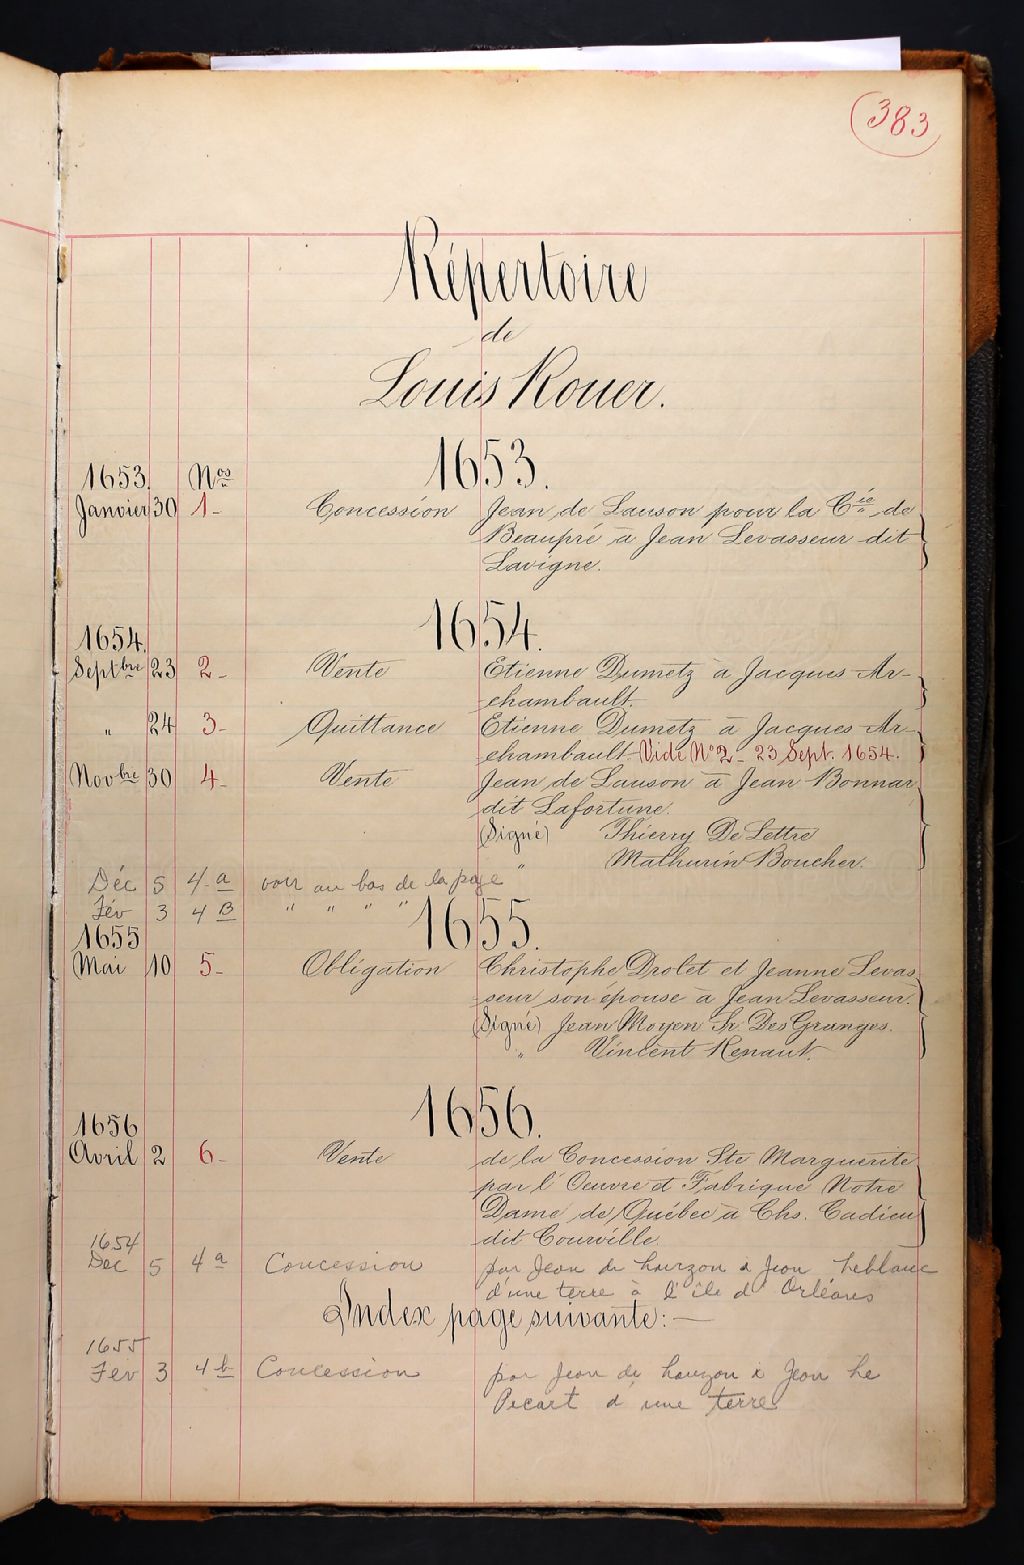 383
Répertoire
de
Louis Rouer.
1653.
1653. Nos
Janvier 30 1- Concession Jean de Lauson pour la Cie de
Beaupré à Jean Levasseur dit
Lavigne.
1654.
1654.
Septbre 23 2- Vente Etienne Dumetz à Jacques Ar-
chambault.
" 24 3- Quittance Etienne Dumetz à Jacques Ar-
chambault Vide No 2- 23 Sept. 1654.
Novbre 30 4- Vente Jean de Lauson à Jean Bonnar
dit Lafortune.
(Signé) Thierry De Lettre
" Mathurin Boucher.
Déc 5 4-a voir au bas de la page
Fév 3 4 B " " " "
1655.
1655
Mai 10 5- Obligation Christophe Drolet et Jeanne Levas
seur son épouse à Jean Levasseur.
(Signé) Jean Moyen Sr. Des Granges.
" Vincent Renaut.
1656.
1656
Avril 2 6- Vente de la Concession Ste Marguerite
par l'Oeuvre et Fabrique Notre
Dame de Québec à Chs. Cadieu
dit Courville
1654
Dec 5 4 a Concession par Jean de Lauzon à Jean Leblanc
d'une terre à l'île d'Orléans
Index page suivante:—
1655
Fev 3 4 b Concession par Jean de Lauzon à Jean Le
Picart d'une terre